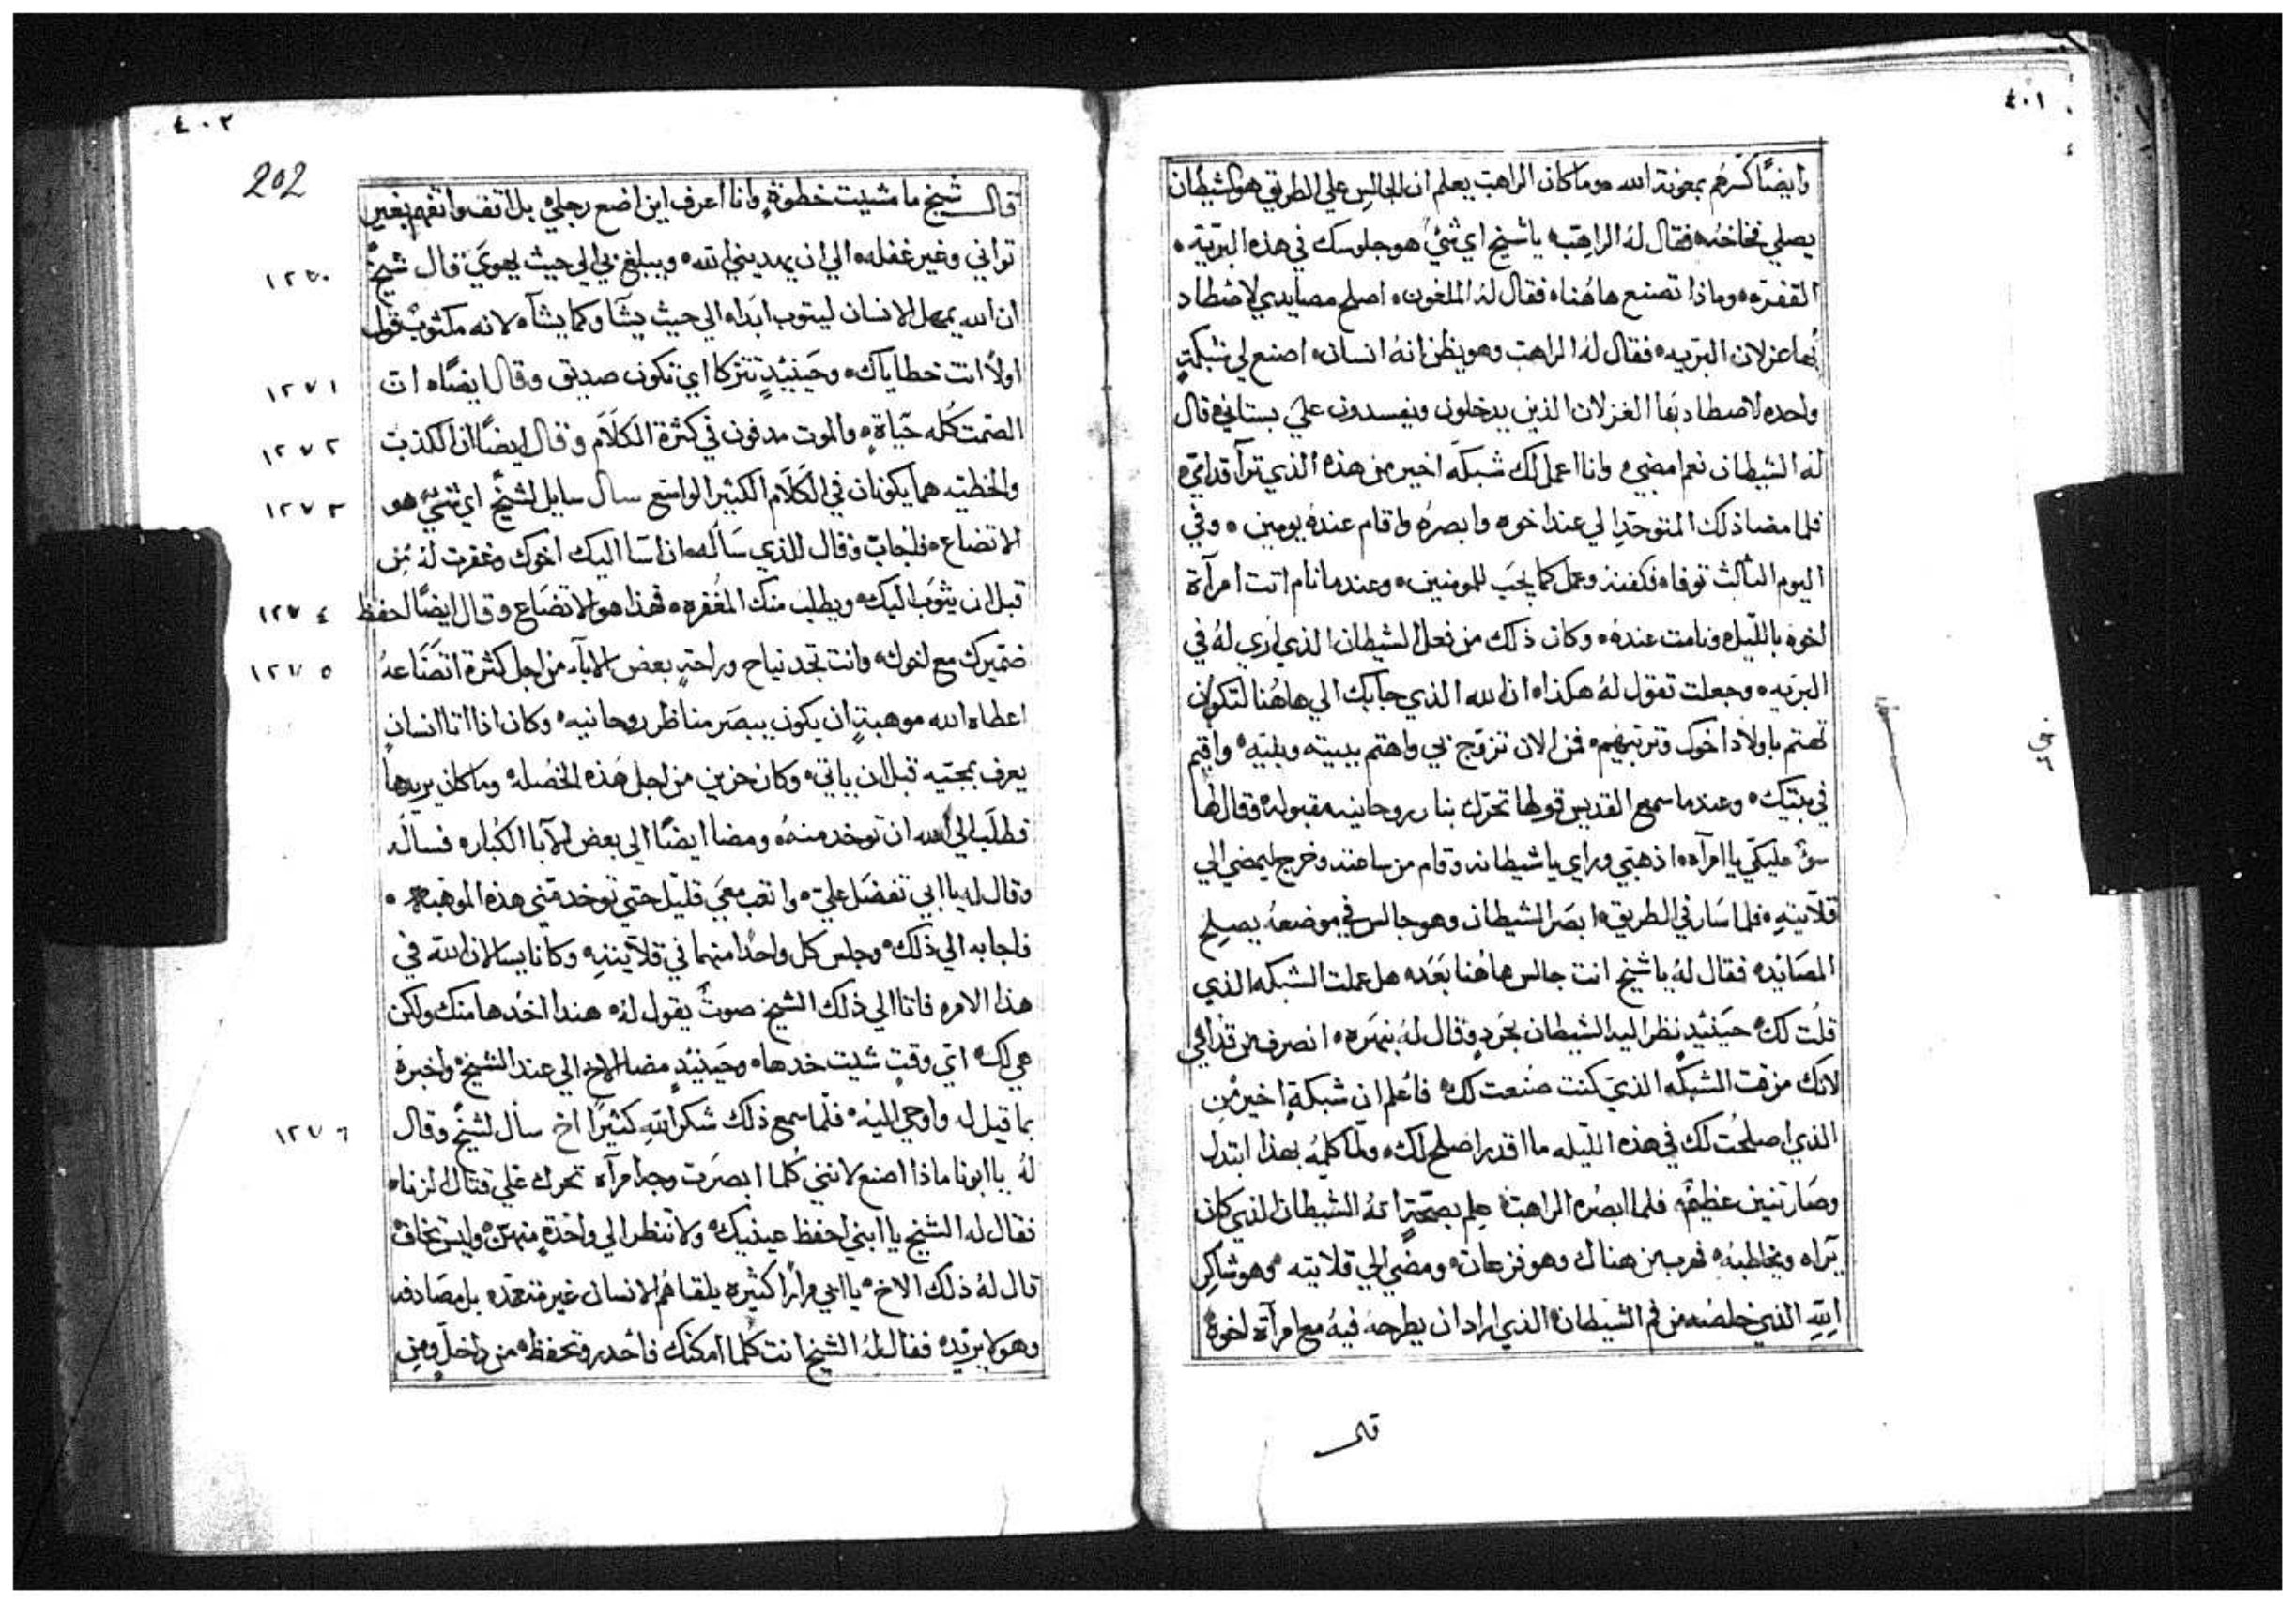 ٤٠١
وايضًا كسرهم بمعونة الله وما كان الراهب يعلم ان الجالس علي الطريق هو الشيطان
يصلي فخاخه فقال له الراهب يا شيخ اي شيٍ هو جلوسك في هذه البرّيه
القفره وماذا تصنع هاهُنا فقال له الملعون اصلح مصايدي لاصطاد
بُها غزلان البريه فقال لهُ الراهب وهو يظن انهُ انسان اصنع لي شبكةٍ
واحده لاصطاد بها الغزلان الذين يدخلون ويفسدون عليَ بستاني قال
له الشيطان نعم امضي وانا اعمل لك شبكه اخير من هذه الذي تراَ قدامي
فلما مضا ذلك المتوحد الي عند اخوه وابصرهُ واقام عندهُ يومين وفي
اليوم الثالث توفاه فكفنه وعمل كما يجب للمومنين وعندما نام اتت امرآة
اخوه بالليل ونامت عندهُ وكان ذلك من فعل الشيطان الذي اري لهُ في
البريه وجعلت تقول لهُ هكذا ان الله الذي جابك الي هاهُنا لتكون
تهتم باولاد اخوك وتربيهم فمن الان تزوج بي واهتم ببيته وبنيه واقيم
في بيتك وعندما سمع القديس قولها تحرّك بنار روحانيه مقبوله وقال لها
سوٌ عليكي يا امرآه اذهبي وراي يا شيطانه وقام من ساعته وخرج ليمضي الي
قلّايته فلما سار في الطريق ابصَر الشيطان وهو جالس في موضعهُ يصلح
المصَايده فقال لهُ يا شيخ انت جالس هاهُنا بَعَده هل عملت الشبكه الذي
قلُت لك حيَنيدٍ نظر اليه الشيطان بحَرد وقال لهُ بنهَره انصرف من قدامي
لانك مزقت الشبكه الذي كنت صُنعت لك فاُعلم ان شبكةٍ اخير من
الذي اصلحُت لك في هذه الليله ما اقدر اصلح لك ولما كلمهُ بهذا ابتدل
وصَار تنين عظيم فلما ابصُره الراهب علم بصحّةٍ انهُ الشيطان الذي كان
يَراه ويخاطبُه فهرب من هناك وهو فزعان ومضي الي قلايته وهو شاكر
لله الذي خلصُه من فم الشيطان الذي اراد ان يطرحهُ فيهُ مع امرآة اخوهُ
قال
٤٠٢
202
قال شيخ ما مشيت خطوة وانا اعرف اين اضع رجلي بل اقف واتفهم بغير
تواني وغير غفله الي ان يهديني الله ويبلغ بي الي حيث يهوي قال شيخٌ
١٢٧٠
ان الله يمهل الانسان ليتوب ابَداه الي حيث يشآ وكما يشآه لانه مكتوبُ قول
اولًا انت خطاياك وحَينيدٍ تتزكا اي تكون صديق وقال ايضًا ان
١٢٧١
الصَمت كُله حَياةٍ والموت مدفون في كثرة الكَلَام وقال ايضًا ان الكذب
١٢٧٢
والخطيه هما يكونان في الكَلَام الكثير الواسع سال سايل لشيخ اي شيٍ هو
١٢٧٣
الاتضاع فاُجاب وقال للذي سَاله ان اسَا اليك اخوك وغفرت لهُ من
قبل ان يتوبَ اليك ويطلب منك المغُفره فهذا هو الاتضَاع وقال ايضًا احفظ
١٢٧٤
ضميرك مع اخوك وانت تجد نياح وراحةٍ بعض الابآء من اجل كثرة اتضَاعهُ
١٢٧٥
اعطاه الله موهبةٍ ان يكون يبصَر مناظر روحانيه وكان اذا اتا انسانٍ
يعرف بمجيّه قبل ان ياتي وكان حزين من اجل هَذه الخصُله وما كان يريدها
فطلَب الي الله ان توخد منهُ ومضا ايضًا الي بعض الابا الكُبار فساله
وقال له يا ابي تفضَل علي واتعب معيَ قليل حتي توخد مّني هذه الموهبه
فاجابه الي ذلك وجلس كل واحدًا منهما في قلايتهِ وكانا يسالان الله في
هذا الامر فاتا الي ذلك الشيخ صوتٌ يقول لهُ هنذا اخُدها منك ولكن
هي لك ايّ وقتٍ شيت خدها وحَينيدٍ مضا الاخ الي عند الشيخ واخبرهُ
بما قيل له واوحي اليُه فلّما سمع ذلك شكر اللهِ كثيرًا اخ سأل لشيخ وقال
١٢٧٦
لهُ يا ابونا ماذا اصنع لانني كُلما ابصَرت وجه امرآه تحرك علي قتال الزناه
فقال له الشيخ يا ابني احفظ عينيك ولا تنظر الي واحَدةٍ منهنّ وليس تخاف
قال لهُ ذلك الاخ يا ابي مرارًا كثيره يلقاهُم الانسان غير متعمّده بل مصَادفه
وهو لا يريده فقال لهُ الشيخ انت كُلما امكنك فاُحدر وتحفظ من داخلٍ ومن